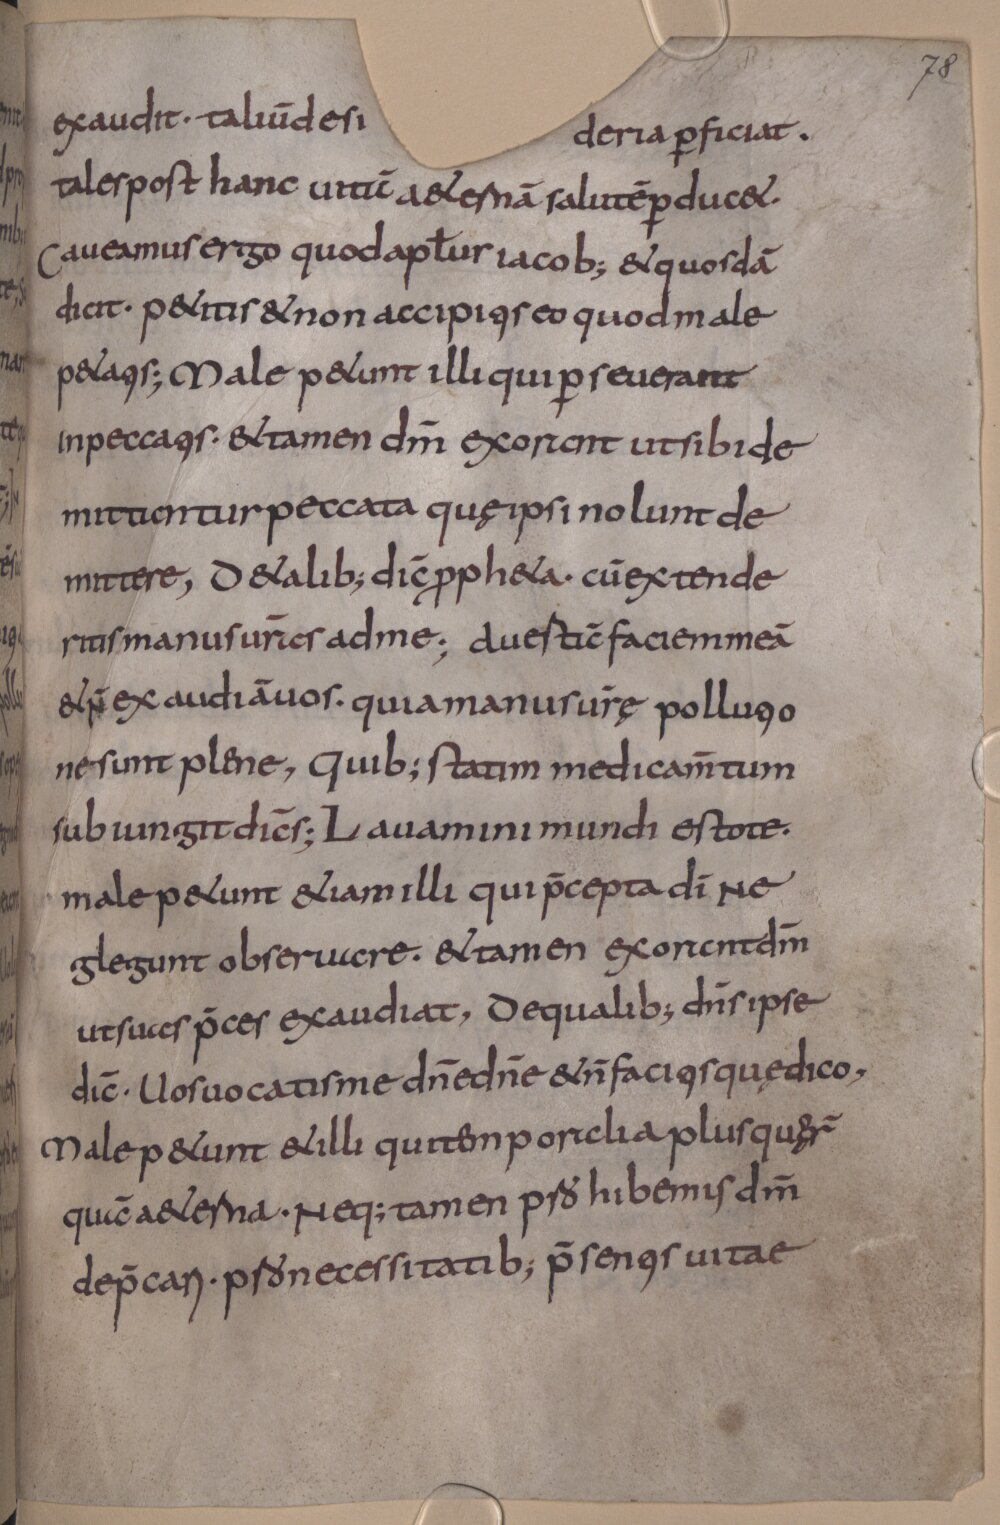 78
exaudit. taliūdesi deria ꝑficiat.
tales post hanc uitā a&ernā salutē ꝑduc&.
Caueamus ergo quod apł̄ur iacob; & quosdā
dicit. p&itis & non accipiꝯs eo quod male
p&aꝯs; Male p&unt illi qui ꝑseuerant
inpeccaꝯs. & tamen dm̄ exorant ut sibi de
mittantur peccata quę ipsi nolunt de
mittere, D& alib; dic̄ ꝓph&a. cū extende
ritis manus ur̄as ad me; auertā faciem meā
& n̄ exaudiā uos. quia manus ur̄ę polluꝯo
ne sunt plene, Quib; statim medicam̄tum
subiungit dic̄s; Lauamini mundi estote.
male p&unt &iam illi qui p̄cepta dī ne
glegunt obseruare. & tamen exorantdm̄
ut suas p̄ces exaudiat, De qualib; dn̄s ipse
dic̄. Uos uocatis me dn̄e dn̄e & n̄ faciꝯs quę dico,
Male p&unt & illi qui temporalia plus quęr̄
quā a&erna. Neq; tamen ꝓhibemus dm̄
dep̄cari. ꝓ necessitatib; p̄senꝯs uitae